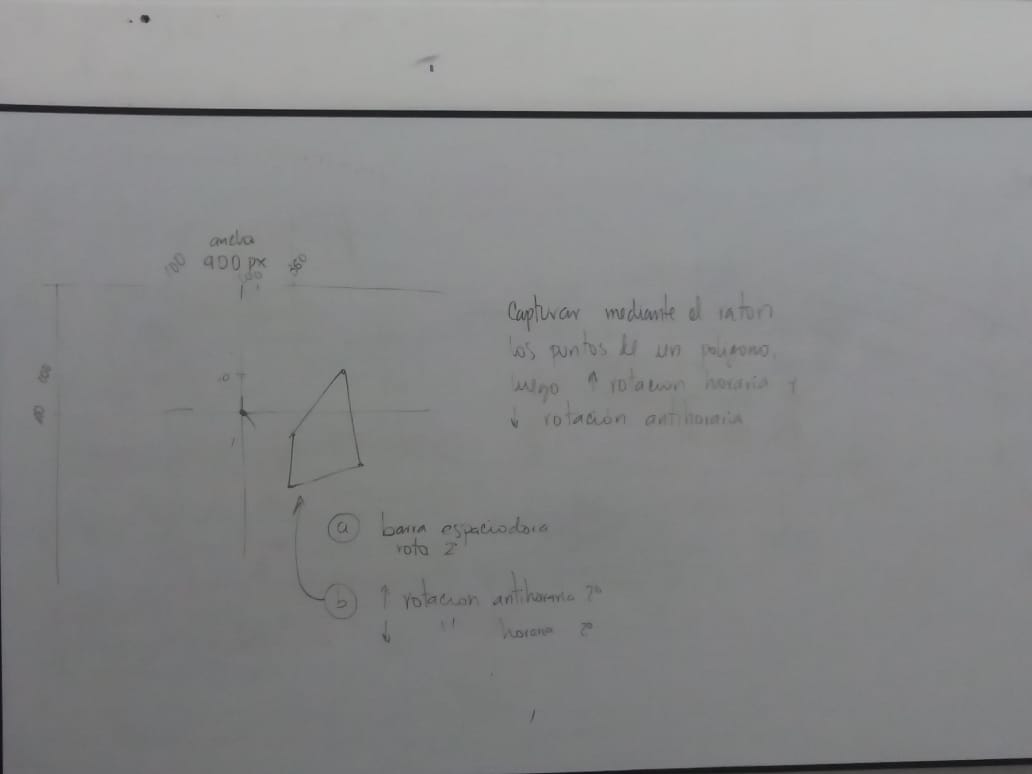 ancho
100 900 px
Capturar mediante el raton
los puntos de un poligono,
luego ↑ rotacion horaria y
↓ rotación antihoraria
a barra espaciadora
rota 2°
b ↑ rotacion antihoraria 2°
↓ " horaria 2°